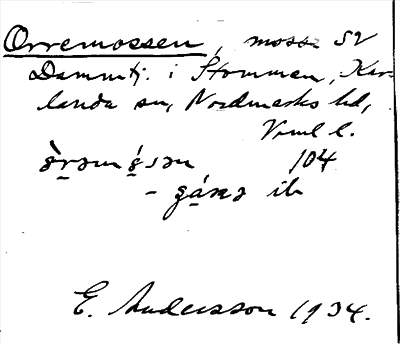 Orremossen, mosse SV
Dammtj. i Strommen, Kar-
landa sn, Nordmarks hd,
Vrml l.
104
ib
E. Andersson 1934.